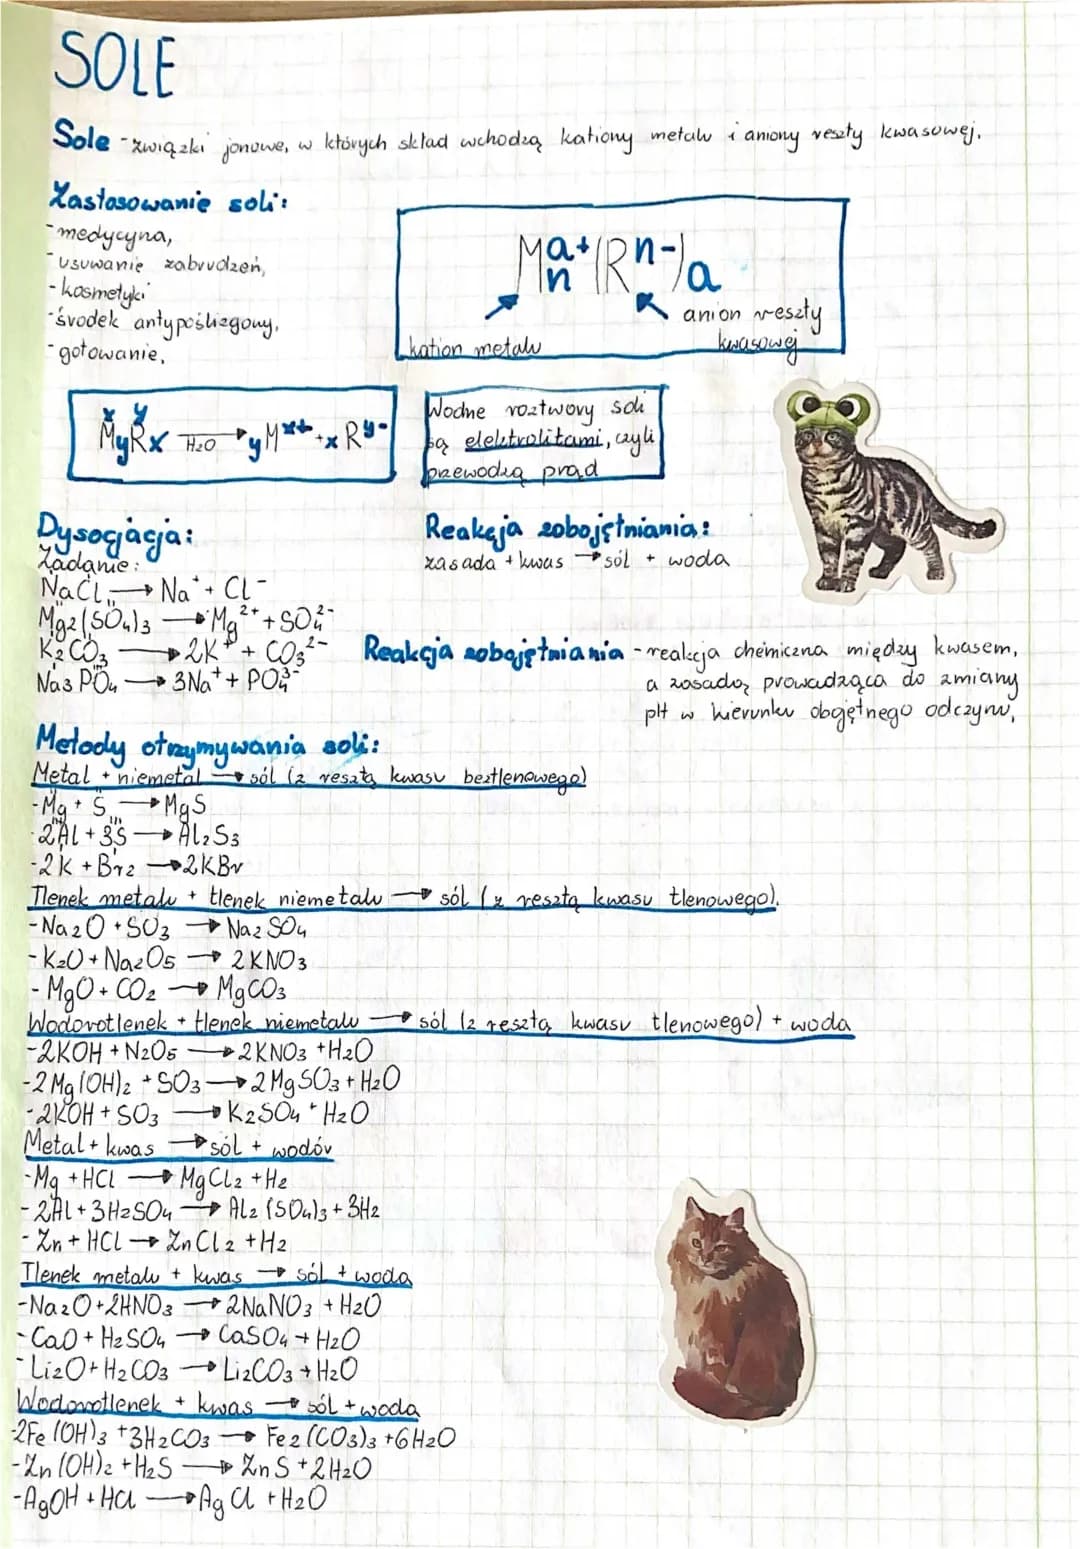 SOLE
Sole - związki jonowe, w których skład wchodzą kationy metalu i aniony reszty kwasowej.
Zastosowanie soli:
- medycyna,
- usuwanie zabrudzeń,
- kosmetyki
- środek antypoślizgowy,
- gotowanie,
Mₙᵃ⁺(Rⁿ⁻)ₐ
kation metalu
anion reszty
kwasowej
x y
MyRx →H₂O yMˣ⁺ + xRʸ⁻
Wodne roztwory soli
są elektrolitami, czyli
przewodzą prąd
Dysocjacja:
Zadanie:
NaCl → Na⁺ + Cl⁻
Mg₂(SO₄)₃ → Mg²⁺ + SO₄²⁻
K₂CO₃ → 2K⁺ + CO₃²⁻
Na₃PO₄ → 3Na⁺ + PO₄³⁻
Reakcja zobojętniania:
zasada + kwas → sól + woda
Reakcja zobojętniania - reakcja chemiczna między kwasem,
a zasadą, prowadząca do zmiany
pH w kierunku obojętnego odczynu,
Metody otrzymywania soli:
Metal + niemetal → sól (z resztą kwasu beztlenowego)
- Mg + S → MgS
- 2Al + 3S → Al₂S₃
- 2K + Br₂ → 2KBr
Tlenek metalu + tlenek niemetalu → sól (z resztą kwasu tlenowego).
- Na₂O + SO₃ → Na₂SO₄
- K₂O + Na₂O₅ → 2KNO₃
- MgO + CO₂ → MgCO₃
Wodorotlenek + tlenek niemetalu → sól (z resztą kwasu tlenowego) + woda
- 2KOH + N₂O₅ → 2KNO₃ + H₂O
- 2Mg(OH)₂ + SO₃ → 2MgSO₃ + H₂O
- 2KOH + SO₃ → K₂SO₄ + H₂O
Metal + kwas → sól + wodór
- Mg + HCl → MgCl₂ + H₂
- 2Al + 3H₂SO₄ → Al₂(SO₄)₃ + 3H₂
- Zn + HCl → ZnCl₂ + H₂
Tlenek metalu + kwas → sól + woda
- Na₂O + 2HNO₃ → 2NaNO₃ + H₂O
- CaO + H₂SO₄ → CaSO₄ + H₂O
- Li₂O + H₂CO₃ → Li₂CO₃ + H₂O
Wodorotlenek + kwas → sól + woda
- 2Fe(OH)₃ + 3H₂CO₃ → Fe₂(CO₃)₃ + 6H₂O
- Zn(OH)₂ + H₂S → ZnS + 2H₂O
- AgOH + HCl → AgCl + H₂O